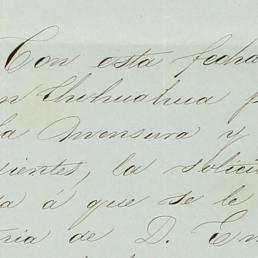 Con esta fecha
en Chihuahua p
la mensura y
dientes, la solici
a á que se le
tria de D. Em